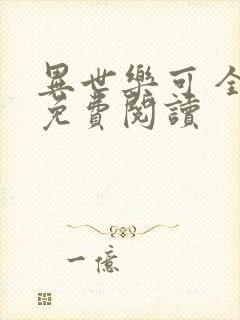 異世樂可 全
免費閱讀
一億